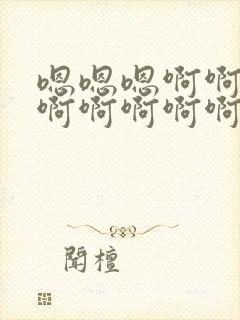 嗯嗯嗯啊啊
啊啊啊啊啊
闻檀